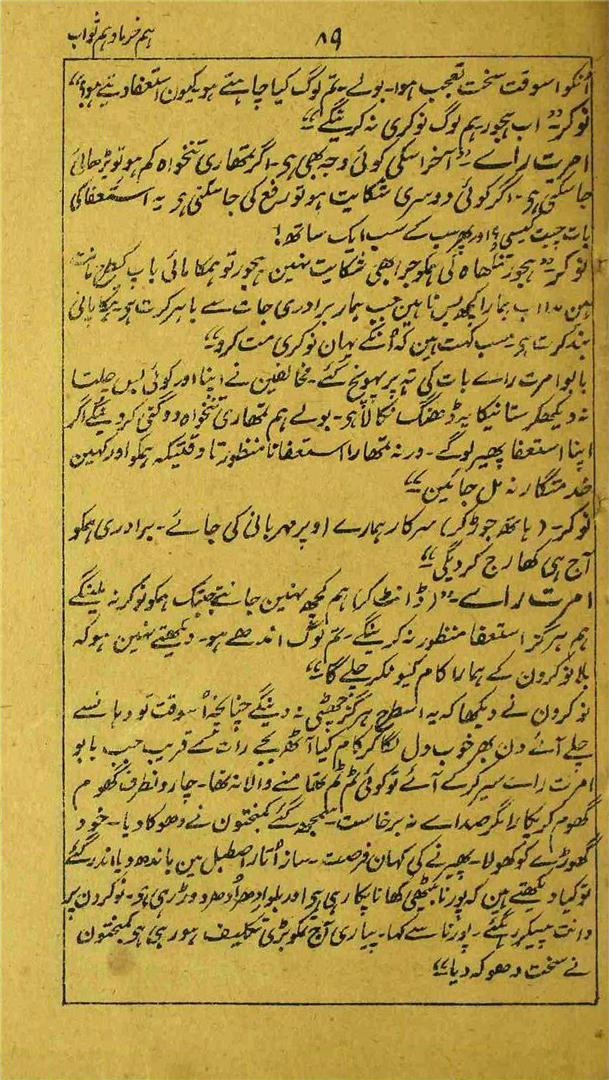 ہم خرما و ہم ثواب
۸۹
انکو اسوقت سخت تعجب ہوا۔ بولے۔ تم لوگ کیا چاہتے ہو۔ کیون استعفا دیتے ہو؟“
نوکر۔ ”اب ہجور ہم لوگ نوکری نہ کرینگے“
امرت راے۔ ”آخر اسکی کوئی وجہ بھی ہی۔ اگر تمھاری تنخواہ کم ہو تو بڑھائی
جاسکتی ہی۔ اگر کوئی دوسری شکایت ہو تو رفع کی جاسکتی ہی یہ استعفا کی
بات چیت کیسی؟ اور پھر سب کے سب ایک ساتھ!
نوکر۔ ”ہجور تنکھاہ کی ہمکو جرا بھی شکایت نہین ہجور تو ہمکا مائی باپ کیطرح مانت
ہین مدا اب ہمارا کچھ بس ناہین جب ہمار برادری جات سے باہر کرت ہی۔ ہکا پانی
بند کرت ہی۔ سب کہت ہین کہ اُنکے یہان نوکری مت کرو“
بابو امرت راے بات کی تہ پر پہونچ گئے۔ مخالفین نے اپنا اور کوئی بس چلتا
نہ دیکھکر ستانیکا یہ ڈھنگ نکالا ہی۔ بولے ہم تمھاری تنخواہ دوگنی کردینگے اگر
اپنا استعفا پھیر لوگے۔ ورنہ تمھارا استعفا نامنظور تا وقتیکہ ہمکو اور کہین
خدمتگار نہ مل جائین“
نوکر۔ (ہاتھ جوڑ کر) سرکار ہمارے اوپر مہربانی کی جائے۔ برادری ہمکو
آج ہی کھارج کردیگی“
امرت راے۔ ”(ڈانٹ کر) ہم کچھ نہین جانتے جبتک ہمکو نوکر نہ ملینگے
ہم ہرگز استعفا منظور نہ کرینگے۔ تم لوگ اندھے ہو۔ دیکھتے نہین ہو کہ
بلا نوکرون کے ہمارا کام کیونکر چلے گا“
نوکرون نے دیکھا کہ یہ اسطرح ہرگز چھٹی نہ دینگے چنانچہ اُسوقت تو وہانسے
چلے آئے دن بھر خوب دل لگا کر کام کیا آٹھ بجے رات کے قریب جب بابو
امرت راے سیر کرکے آئے تو کوئی ٹم ٹم تھامنے والا نہ تھا۔ چارونطرف گھوم
گھوم کر پکارا مگر صداے نہ برخاست۔ سمجھ گئے کمبختون نے دھوکا دیا۔ خود
گھوڑے کو کھولا۔ پھیرنے کی کہان فرصت۔ ساز اُتار اصطبل مین باندھ دیا اندر گئے
تو کیا دیکھتے ہین کہ پورنا بیٹھی کھانا پکا رہی ہی اور بلو ادھر اُدھر دوڑ رہی ہی۔ نوکرون پر
دانت پیسکر رہگئے۔ پورنا سے کہا۔ پیاری آج تمکو بڑی تکلیف ہو رہی ہی کمبختون
نے سخت دھوکہ دیا“